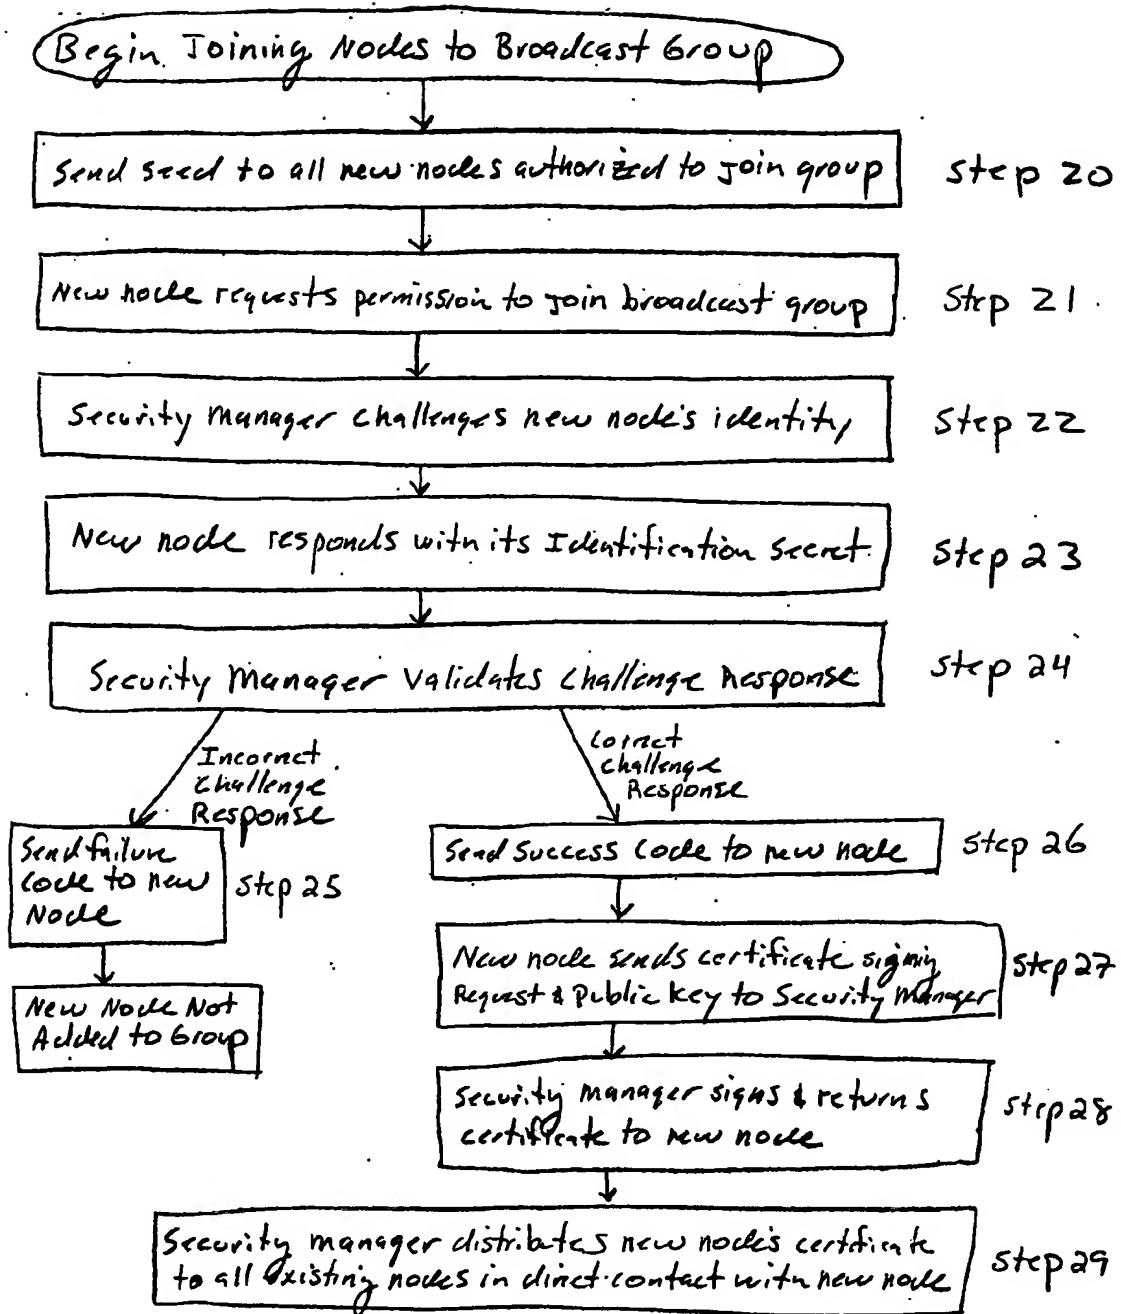 Begin Joining Nodes to Broadcast Group
Send seed to all new nodes authorized to join group
Step 20
New node requests permission to join broadcast group
Step 21
Security Manager Challenges new node's identity
Step 22
New node responds with its Identification Secret
Step 23
Security Manager Validates Challenge Response
Step 24
Incorrect
Challenge
Response
Correct
Challenge
Response
Send failure
Code to new
Node
Step 25
Send Success Code to new node
Step 26
New Node Not
Added to Group
New node sends certificate signing
Request & Public Key to Security Manager
Step 27
Security manager signs & returns
certificate to new node
Step 28
Security manager distributes new node's certificate
to all existing nodes in direct contact with new node
Step 29